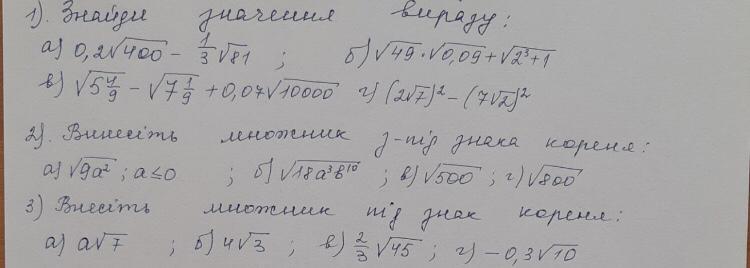 1). Знайди значення виразу:
а) 0,2√400 - 1/3√81 ; б) √49 · √0,09 + √2³+1
в) √5 4/9 - √7 1/9 + 0,07√10000 г) (2√7)² - (7√2)²
2). Винесіть множник з-під знака кореня:
а) √9a² ; a ≤ 0 ; б) √18a³b¹⁰ ; в) √500 ; г) √800
3) Внесіть множник під знак кореня:
а) a√7 ; б) 4√3 ; в) 2/3√45 ; г) -0,3√10